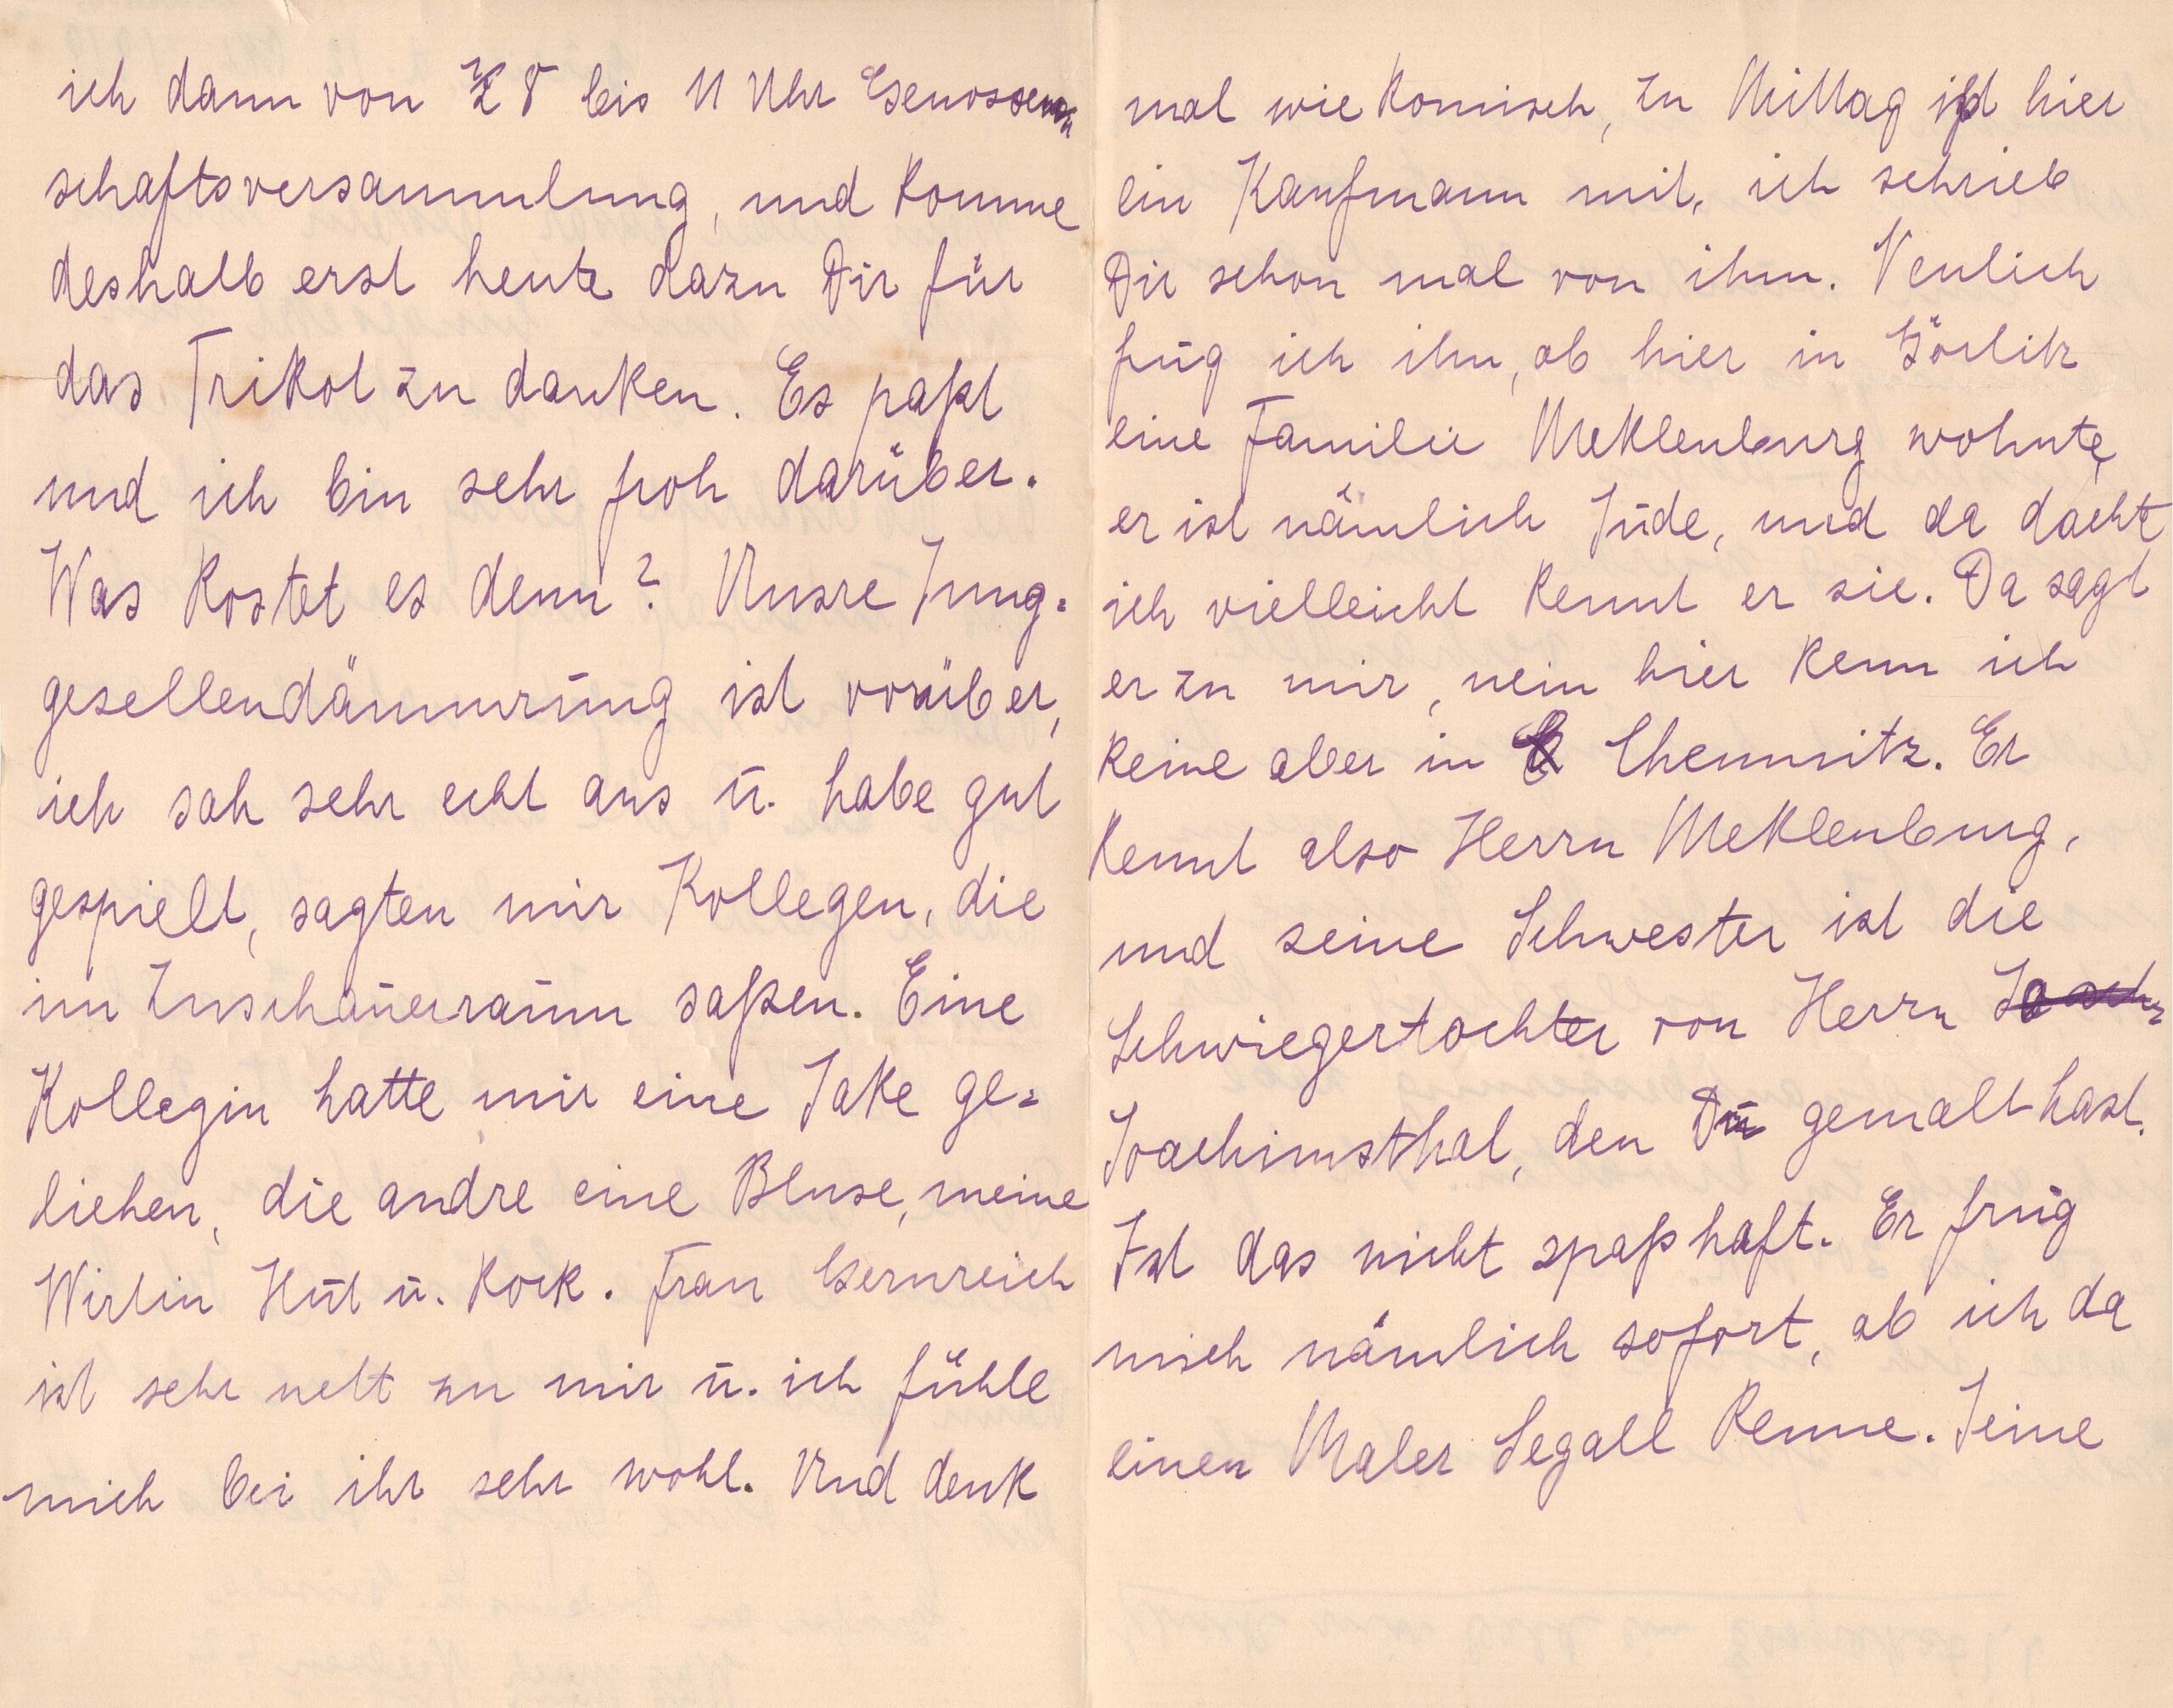 ich dann von ½ 8 bis 11 Uhr Genossen
schaftsversammlung, und komme
deshalb erst heute dazu Dir für
das Trikot zu danken. Es paßt
und ich bin sehr froh darüber.
Was kostet es denn? Unsre Jung-
gesellendämmrung ist vorüber,
ich sah sehr echt aus u. habe gut
gespielt, sagten mir Kollegen, die
im Zuschauerraum saßen. Eine
Kollegin hatte mir eine Jake ge-
liehen, die andre eine Bluse, meine
Wirtin Hut u. Rock. Frau Gernreich
ist sehr nett zu mir u. ich fühle
mich bei ihr sehr wohl. Und denk
mal wie komisch, zu Mittag ißt hier
ein Kaufmann mit, ich schrieb
Dir schon mal von ihm. Neulich
frug ich ihn, ob hier in Görlitz
eine Familie Meklenburg wohnte,
er ist nämlich Jude, und da dachte
ich vielleicht kennt er sie. Da sagt
er zu mir, nein hier kenn ich
keine aber in Chemnitz. Er
kennt also Herrn Meklenburg,
und seine Schwester ist die
Schwiegertochter von Herrn
Joachimsthal, den Du gemalt hast.
Ist das nicht spaßhaft. Er frug
mich nämlich sofort, ob ich da
einen Maler Segall kenne. Seine